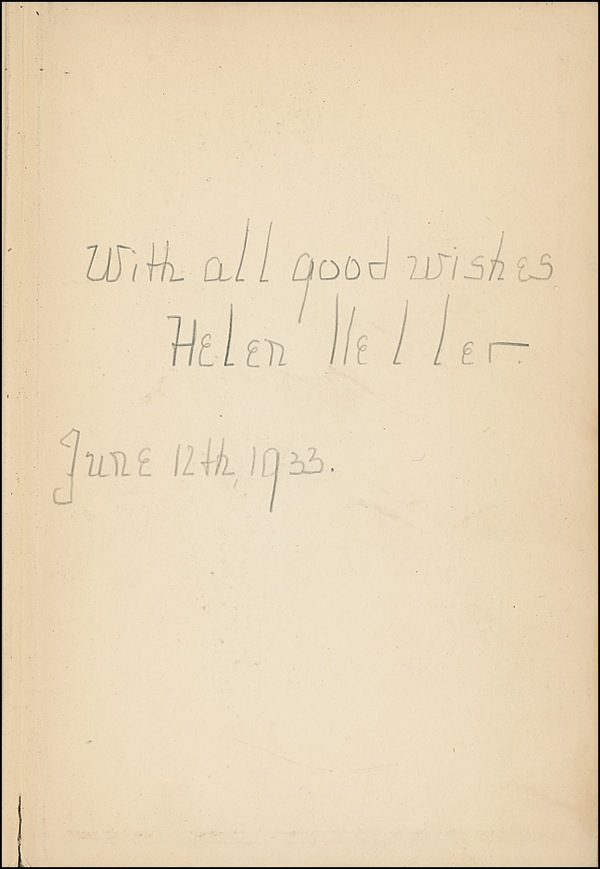 With all good wishes
Helen Keller.
June 12th, 1933.